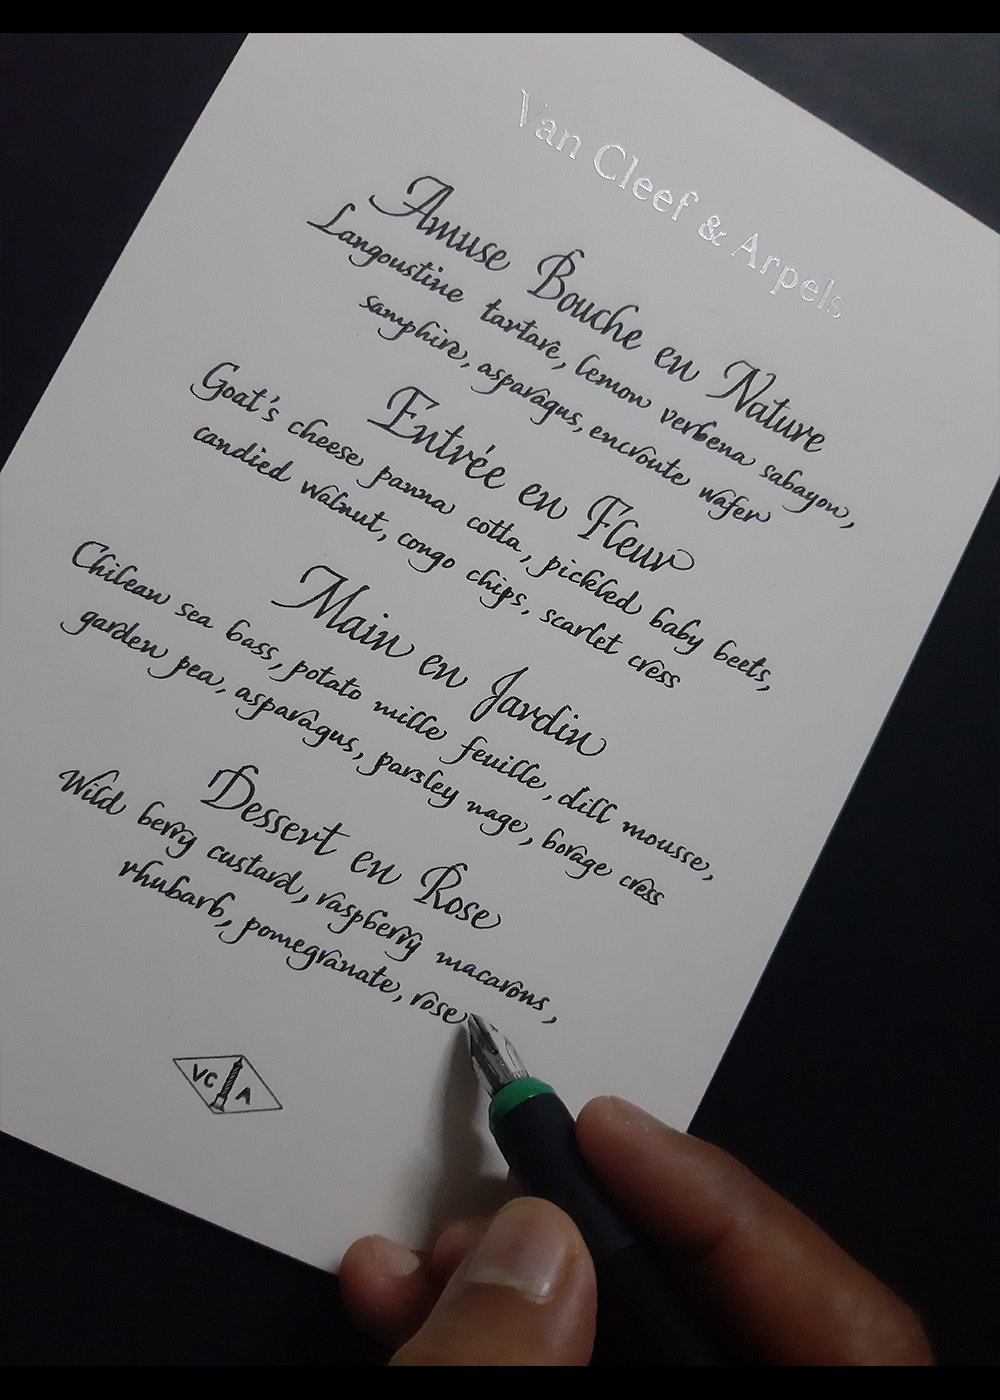 Van Cleef & Arpels
Amuse Bouche en Nature
Langoustine tartare, lemon verbena sabayon,
samphire, asparagus, encroute wafer
Entrée en Fleur
Goat's cheese panna cotta, pickled baby beets,
candied walnut, congo chips, scarlet cress
Main en Jardin
Chilean sea bass, potato mille feuille, dill mousse,
garden pea, asparagus, parsley nage, borage cress
Dessert en Rose
Wild berry custard, raspberry macarons,
rhubarb, pomegranate, rose
VC A